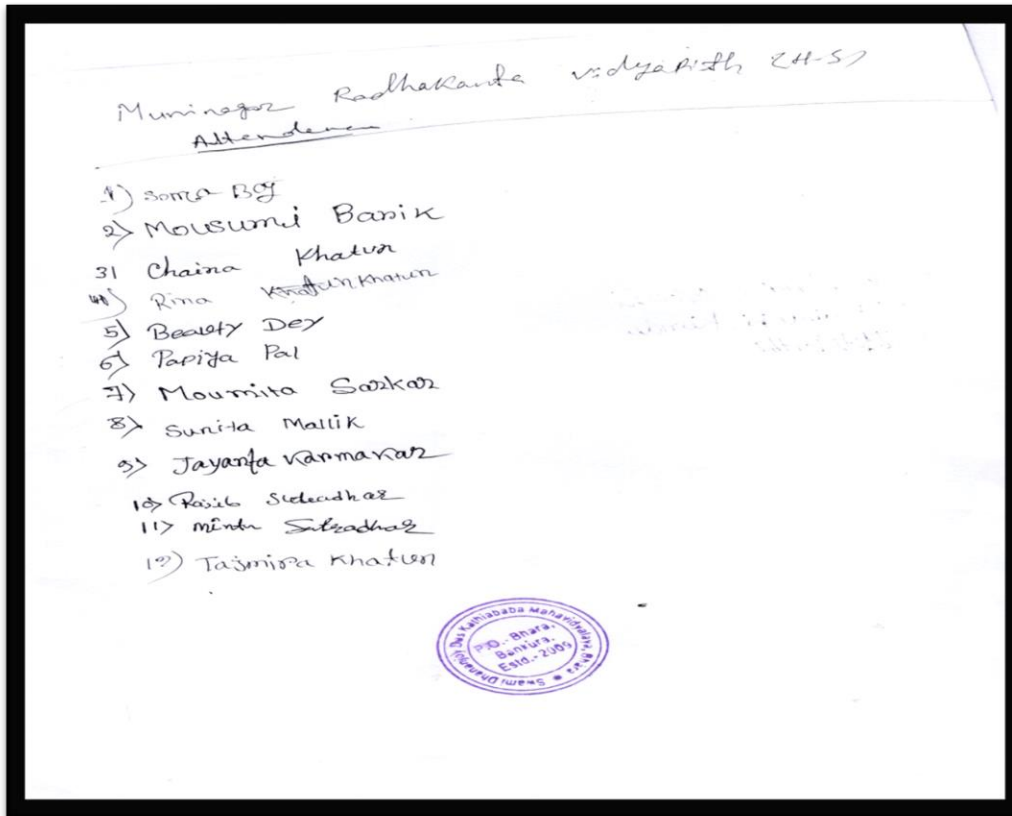 Muninagar Radhakanta vidyapith (H-S)
Attendence
1) Soma Bag
2) Mousumi Barik
3) Chaina Khatun
4) Rina Khatun
5) Beauty Dey
6) Papiya Pal
7) Moumita Sarkar
8) Sunita Mallik
9) Jayanta Karmakar
10) Rajib Sutradhar
11) Mintu Sutradhar
12) Tajmira Khatun
Swami Dhananjoy Das Kathiababa Mahavidyalaya, Bhara
P.O.- Bhara,
Bankura.
Estd.- 2009